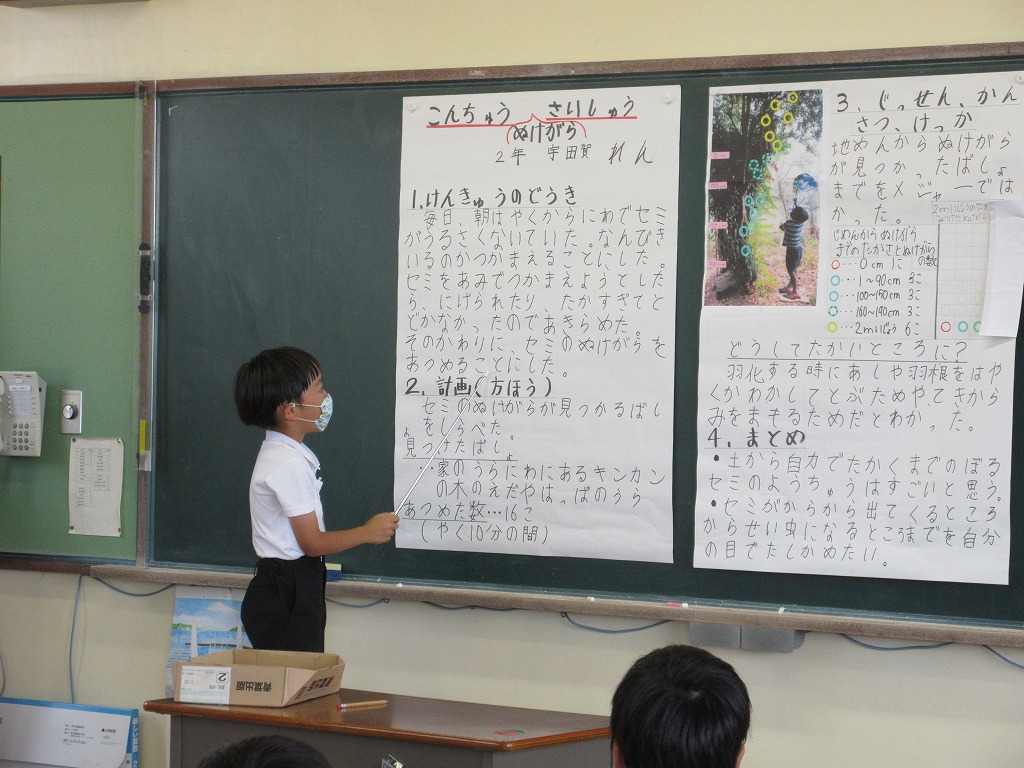 こんちゅう さいしゅう
ぬけがら
2年 宇田賀 れん
1.けんきゅうのどうき
毎日、朝はやくからにわでセミ
がうるさくないていた。なんびき
いるのかつかまえることにした。
セミをあみでつかまえようとした
ら、にげられたり、たかすぎてと
どかなかったのであきらめた。
そのかわりに、セミのぬけがらを
あつめることにした。
2.計画(方ほう)
セミのぬけがらが見つかるばし
ょをしらべた。
見つけたばしょ
・家のうらにわにあるキンカン
の木のえだやはっぱのうら
あつめた数…16こ
(やく10分の間)
3、じっせん、かん
さつ、けっか
地めんからぬけがら
が見つかったばしょ
までをメジャーではか
かった。
じめんからぬけがら
までのたかさとぬけがら
の数
…0cm 1こ
…1~90cm 3こ
…100~150cm 3こ
…160~190cm 3こ
…2mいじょう 6こ
どうしてたかいところに?
羽化する時にあしや羽根をはや
くかわかしてとぶためや、てきから
みをまもるためだとわかった。
4、まとめ
・土から自力でたかくまでのぼる
セミのようちゅうはすごいと思う。
・セミがからから出てくるところ
からせい虫になるところまでを自分
の目でたしかめたい。
青葉出版
2